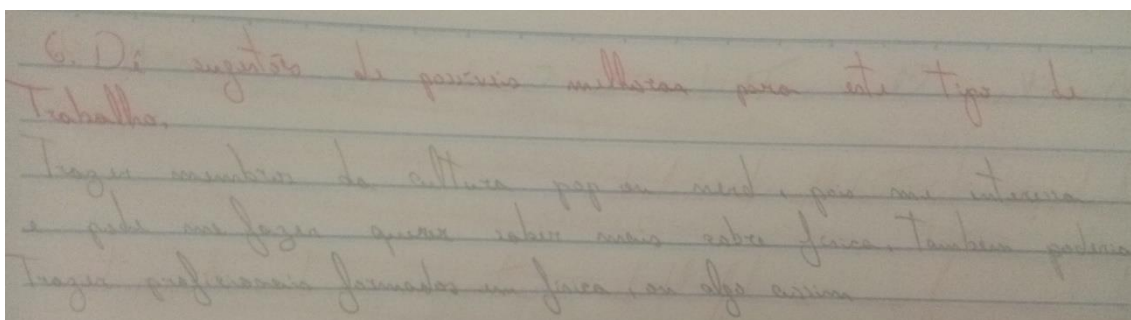 6. Dê sugestões de possíveis melhoras para este tipo de
Trabalho.
Trazer membros da cultura pop ou nerd, pois me interessa
e pode me fazer querer saber mais sobre física. Também poderia
Trazer profissionais formados em física, ou algo assim